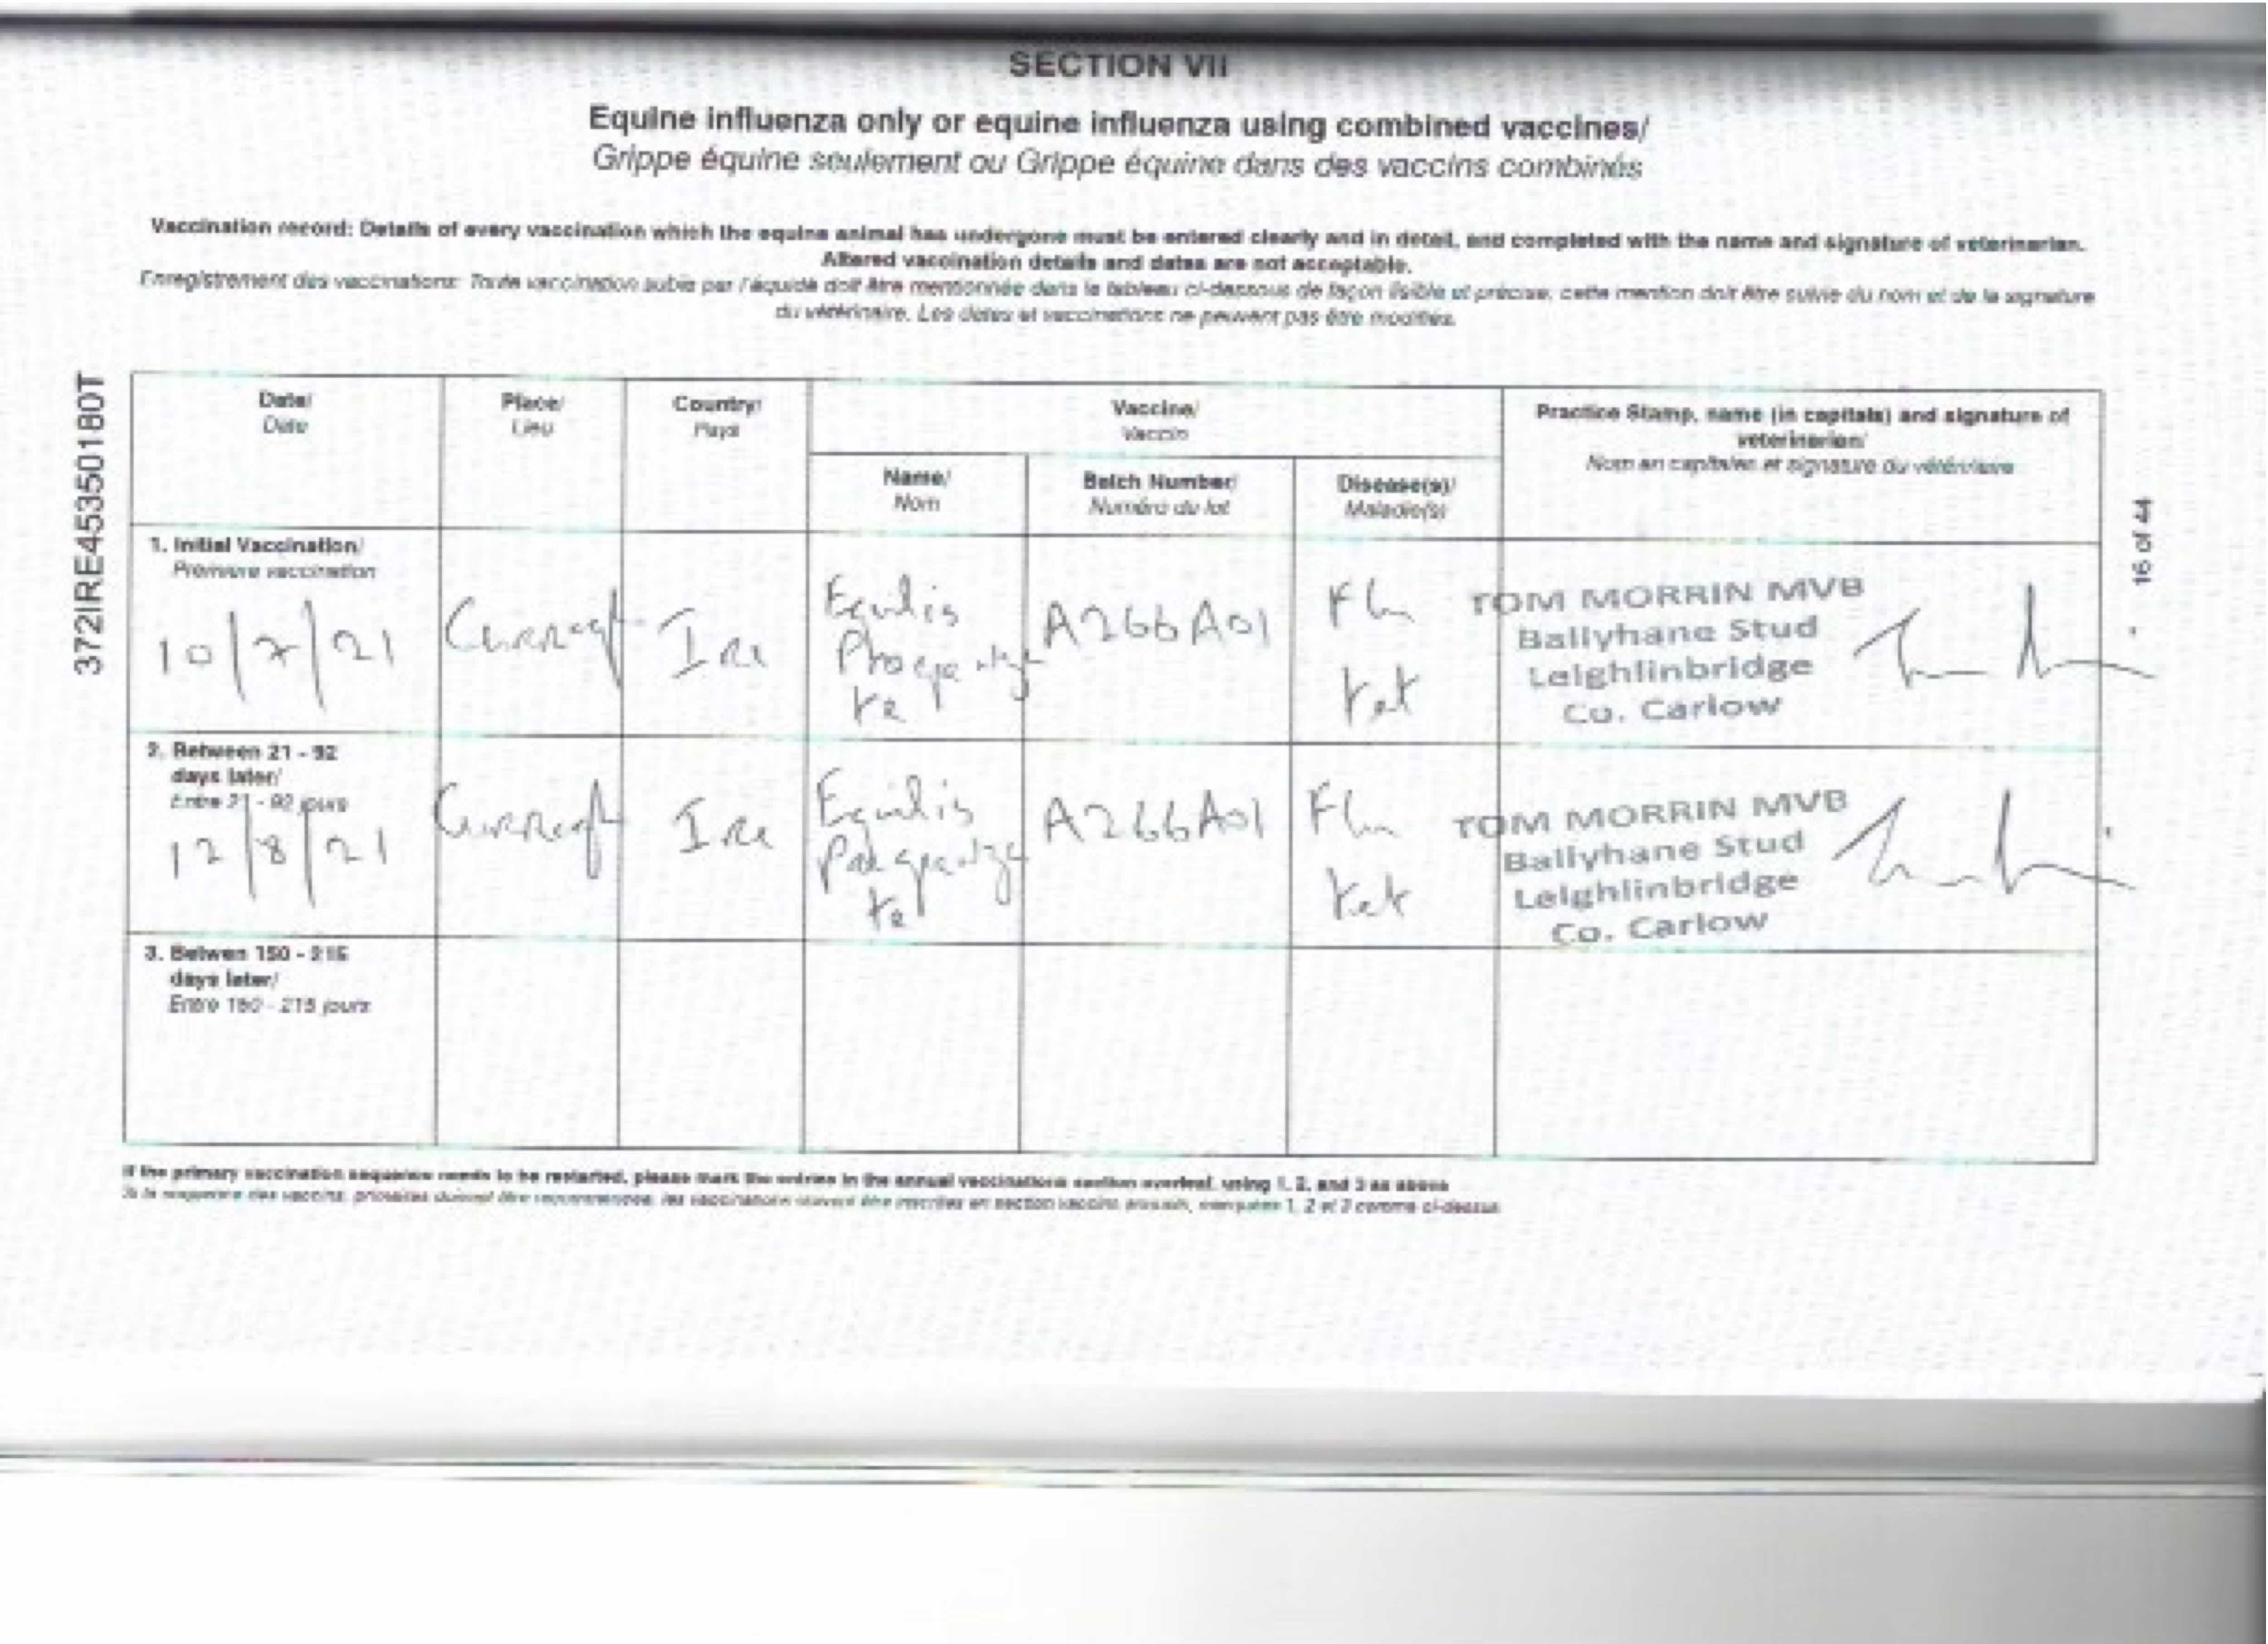 SECTION VII
Equine influenza only or equine influenza using combined vaccines/
Grippe équine seulement ou Grippe équine dans des vaccins combinés
Vaccination record: Details of every vaccination which the equine animal has undergone must be entered clearly and in detail, and completed with the name and signature of veterinarian.
Altered vaccination details and dates are not acceptable.
Enregistrement des vaccinations: Toute vaccination subie par l'équidé doit être mentionnée dans le tableau ci-dessous de façon lisible et précise, cette mention doit être suivie du nom et de la signature
du vétérinaire. Les dates et vaccinations ne peuvent pas être modifiés.
372IRE45350180T
Date/
Date
Place/
Lieu
Country/
Pays
Vaccine/
Vaccin
Practice Stamp, name (in capitals) and signature of
veterinarian/
Nom en capitales et signature du vétérinaire
Name/
Nom
Batch Number/
Numéro du lot
Disease(s)/
Maladie(s)
16 of 44
1. Initial Vaccination/
Première vaccination
10/7/21
Curragh
Ire
Equilis
te
A266A01
Flu
tet
TOM MORRIN MVB
Ballyhane Stud
Leighlinbridge
Co. Carlow
2. Between 21 - 92
days later/
Entre 21 - 92 jours
12/8/21
Curragh
Ire
Equilis
te
A266A01
Flu
tet
TOM MORRIN MVB
Ballyhane Stud
Leighlinbridge
Co. Carlow
3. Betwen 150 - 215
days later/
Entre 150 - 215 jours
If the primary vaccination sequence needs to be restarted, please mark the entries in the annual vaccinations section overleaf, using 1, 2, and 3 as above
Si la séquence des vaccins primaires doivent être recommencées, les vaccinations doivent être inscrites en section vaccins annuels, marquées 1, 2 et 3 comme ci-dessus